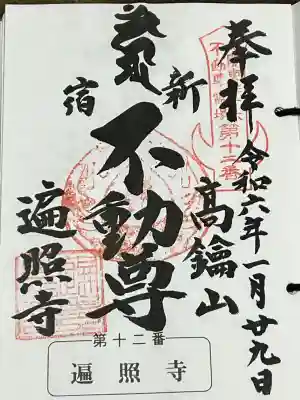 奉拝 令和六年一月廿九日
第十二番
高鑰山
新
宿
不動尊
遍照寺
第十二番
遍照寺